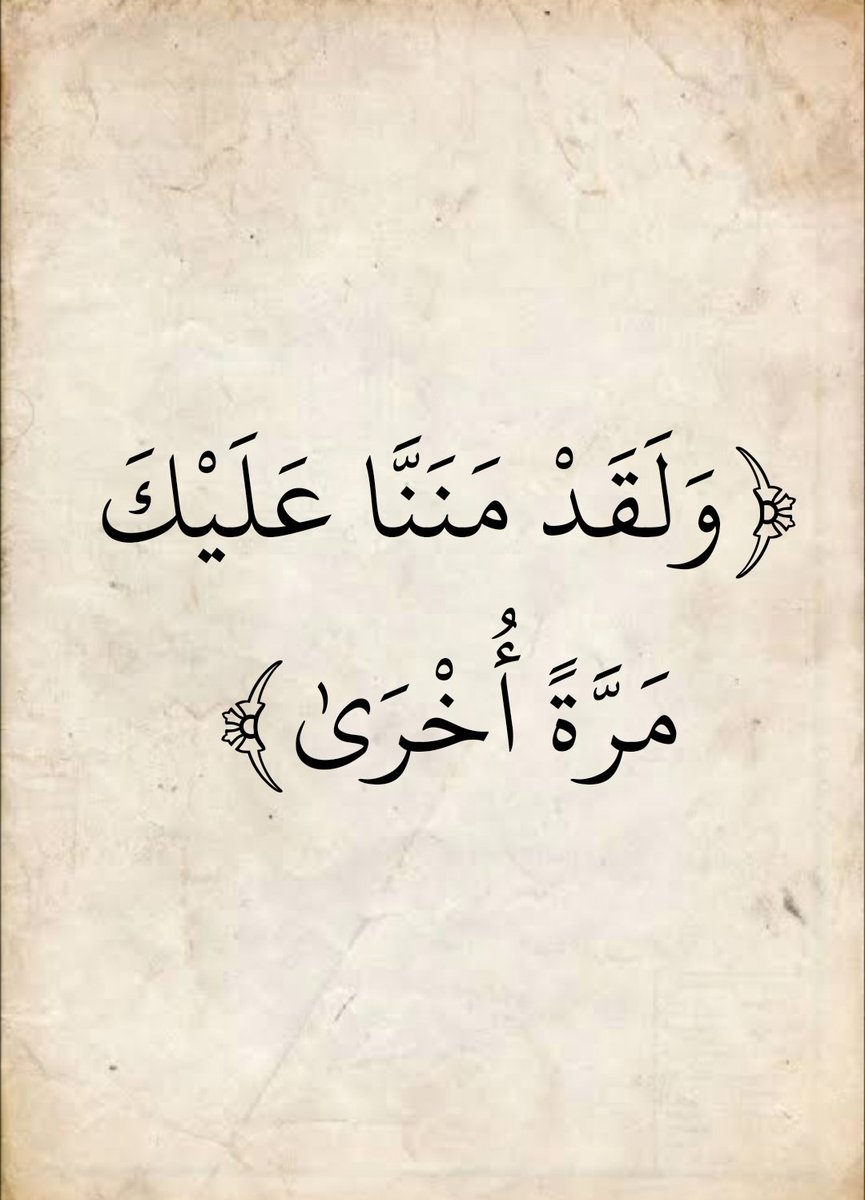 ﴿وَلَقَدْ مَنَنَّا عَلَيْكَ
مَرَّةً أُخْرَىٰ﴾